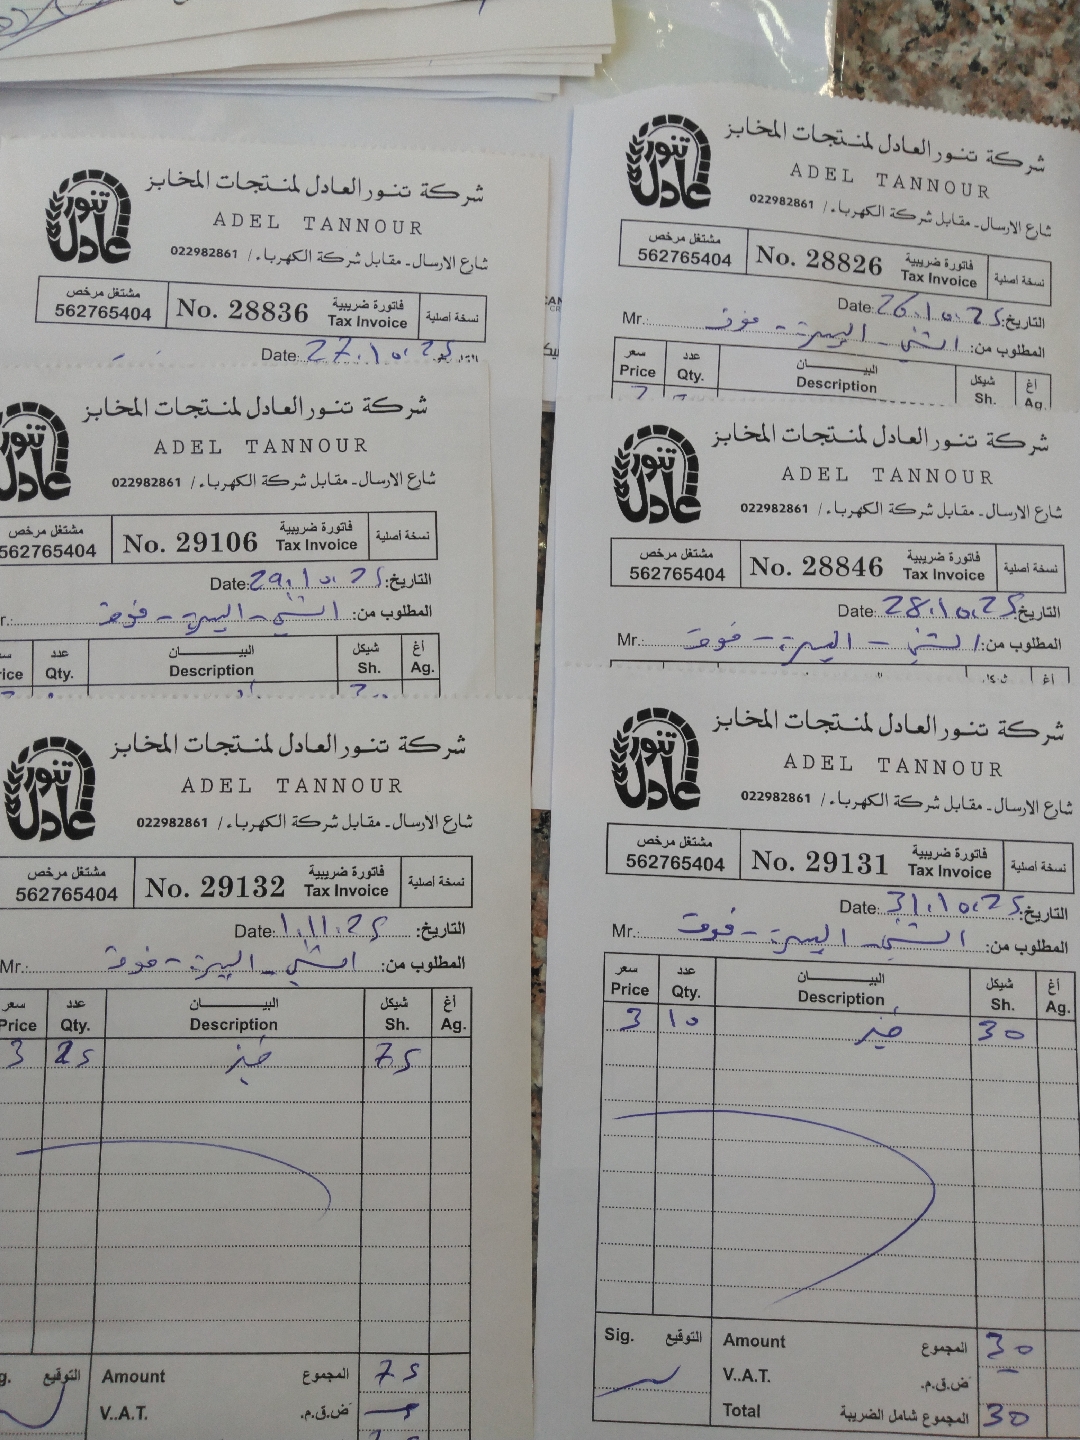 شركة تنور العادل لمنتجات المخابز
ADEL TANNOUR
شارع الارسال - مقابل شركة الكهرباء / 022982861
تنور عادل
مشتغل مرخص 562765404
No. 28836
فاتورة ضريبية Tax Invoice
نسخة أصلية
Date: 27.10.25
شركة تنور العادل لمنتجات المخابز
ADEL TANNOUR
شارع الارسال - مقابل شركة الكهرباء / 022982861
تنور عادل
مشتغل مرخص 562765404
No. 29106
فاتورة ضريبية Tax Invoice
نسخة أصلية
Date: 29.10.25 التاريخ:
المطلوب من:
عدد Qty. البيان Description شيكل Sh. أغ Ag.
شركة تنور العادل لمنتجات المخابز
ADEL TANNOUR
شارع الارسال - مقابل شركة الكهرباء / 022982861
تنور عادل
مشتغل مرخص 562765404
No. 29132
فاتورة ضريبية Tax Invoice
نسخة أصلية
Date: 1.11.25 التاريخ:
Mr.: المطلوب من:
سعر Price عدد Qty. البيان Description شيكل Sh. أغ Ag.
3 25 خبز 75
التوقيع Amount المجموع 75
V..A.T. ض.ق.م.
شركة تنور العادل لمنتجات المخابز
ADEL TANNOUR
شارع الارسال - مقابل شركة الكهرباء / 022982861
تنور عادل
مشتغل مرخص 562765404
No. 28826
فاتورة ضريبية Tax Invoice
نسخة أصلية
Date: 26.10.25 التاريخ:
Mr.: المطلوب من:
سعر Price عدد Qty. البيان Description شيكل Sh. أغ Ag.
شركة تنور العادل لمنتجات المخابز
ADEL TANNOUR
شارع الارسال - مقابل شركة الكهرباء / 022982861
تنور عادل
مشتغل مرخص 562765404
No. 28846
فاتورة ضريبية Tax Invoice
نسخة أصلية
Date: 28.10.25 التاريخ:
Mr.: المطلوب من:
شركة تنور العادل لمنتجات المخابز
ADEL TANNOUR
شارع الارسال - مقابل شركة الكهرباء / 022982861
تنور عادل
مشتغل مرخص 562765404
No. 29131
فاتورة ضريبية Tax Invoice
نسخة أصلية
Date: 31.10.25 التاريخ:
Mr.: المطلوب من:
سعر Price عدد Qty. البيان Description شيكل Sh. أغ Ag.
3 10 خبز 30
Sig. التوقيع Amount المجموع 30
V..A.T. ض.ق.م.
Total المجموع شامل الضريبة 30